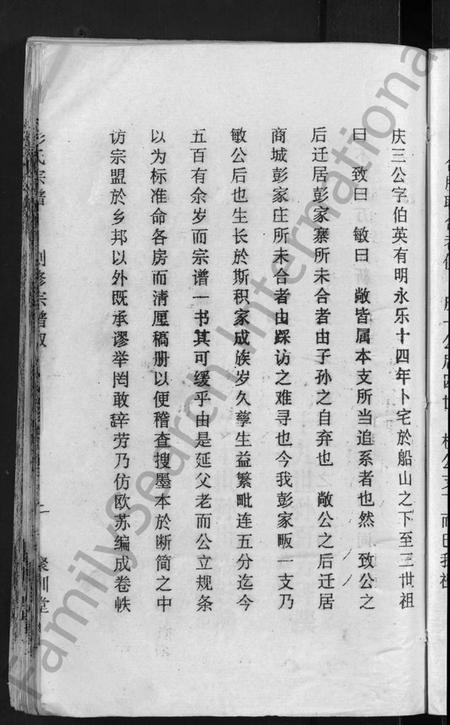 庆三公字伯英有明永乐十四年卜宅於船山之下至三世祖
曰 致曰 敏曰 敞皆属本支所当追系者也然 致公之
后迁居彭家寨所未合者由子孙之自弃也 敞公之后迁居
商城彭家庄所未合者由踩访之难寻也今我彭家畈一支乃
敏公后也生长於斯积家成族岁久孳生益繁毗连五分迄今
五百有余岁而宗谱一书其可缓乎由是延父老而公立规条
以为标准命各房而清厘稿册以便稽查搜墨本於断简之中
访宗盟於乡邦以外既承谬举罔敢辞劳乃仿欧苏编成卷帙
彭氏宗谱
创修宗谱叙
聚训堂
FamilySearch International